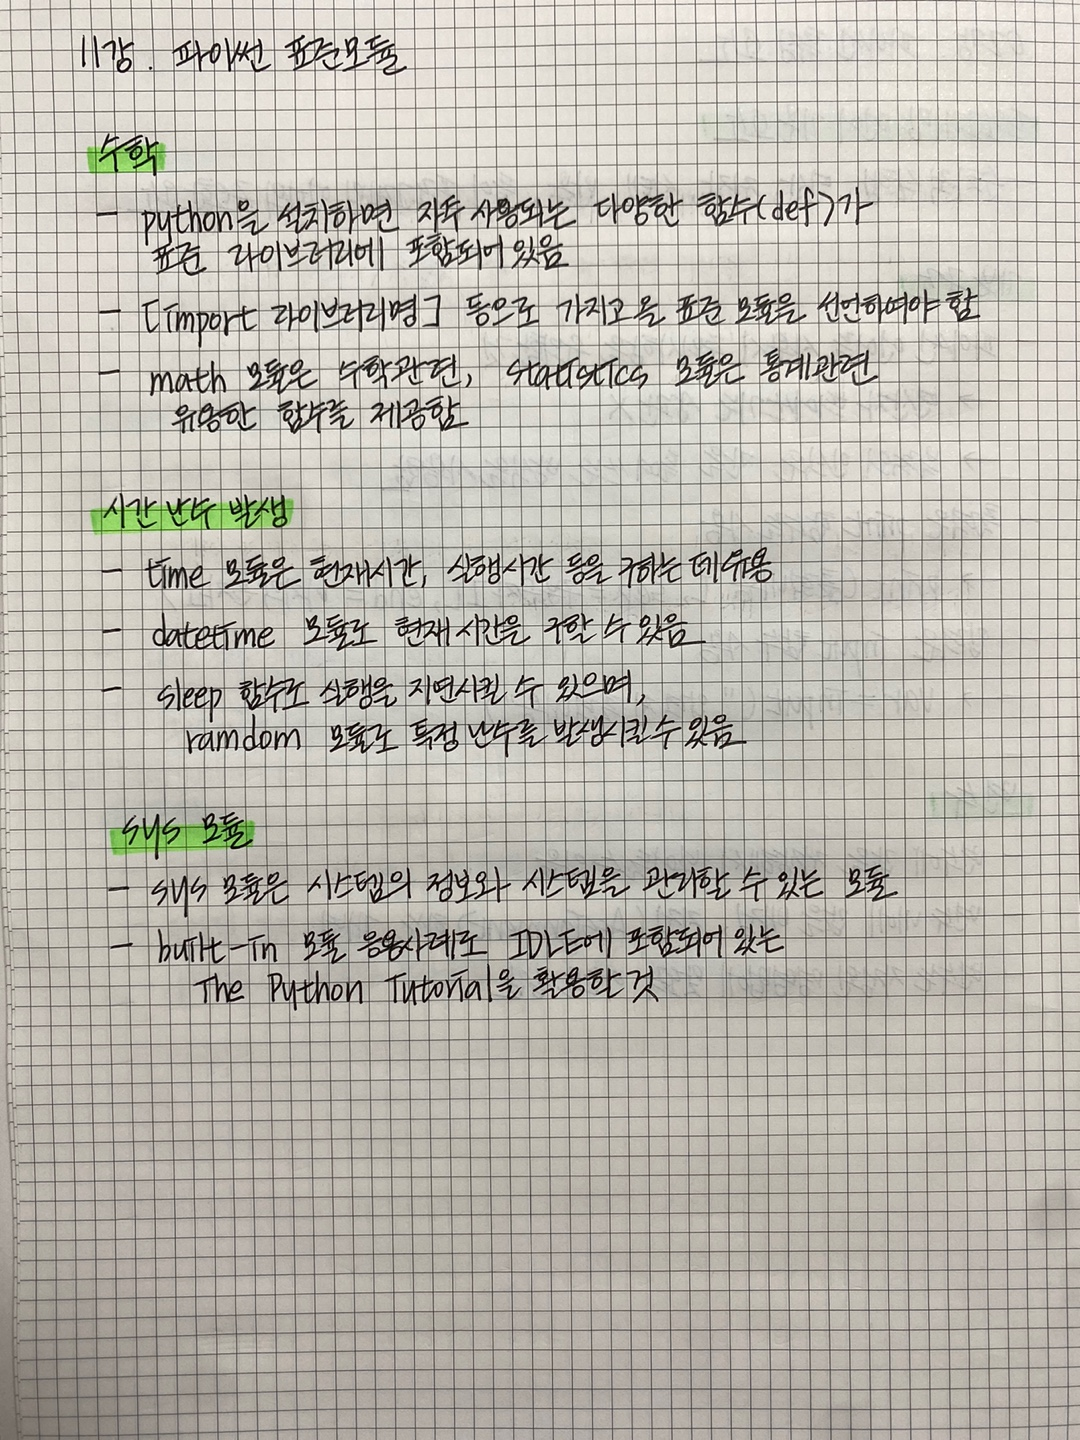 11강. 파이썬 표준모듈
수학
- python을 설치하면 자주 사용되는 다양한 함수(def)가
표준 라이브러리에 포함되어 있음
- [import 라이브러리명] 등으로 가지고 올 표준 모듈을 선언하여야 함
- math 모듈은 수학관련, statistics 모듈은 통계관련
유용한 함수를 제공함
시간 난수 발생
- time 모듈은 현재시간, 실행시간 등을 구하는 데 유용
- datetime 모듈로 현재 시간을 구할 수 있음
- sleep 함수로 실행을 지연시킬 수 있으며,
ramdom 모듈로 특정 난수를 발생시킬 수 있음
sys 모듈
- sys 모듈은 시스템의 정보와 시스템을 관리할 수 있는 모듈
- built-in 모듈 응용사례로 IDLE에 포함되어 있는
The Python Tutorial을 활용할 것